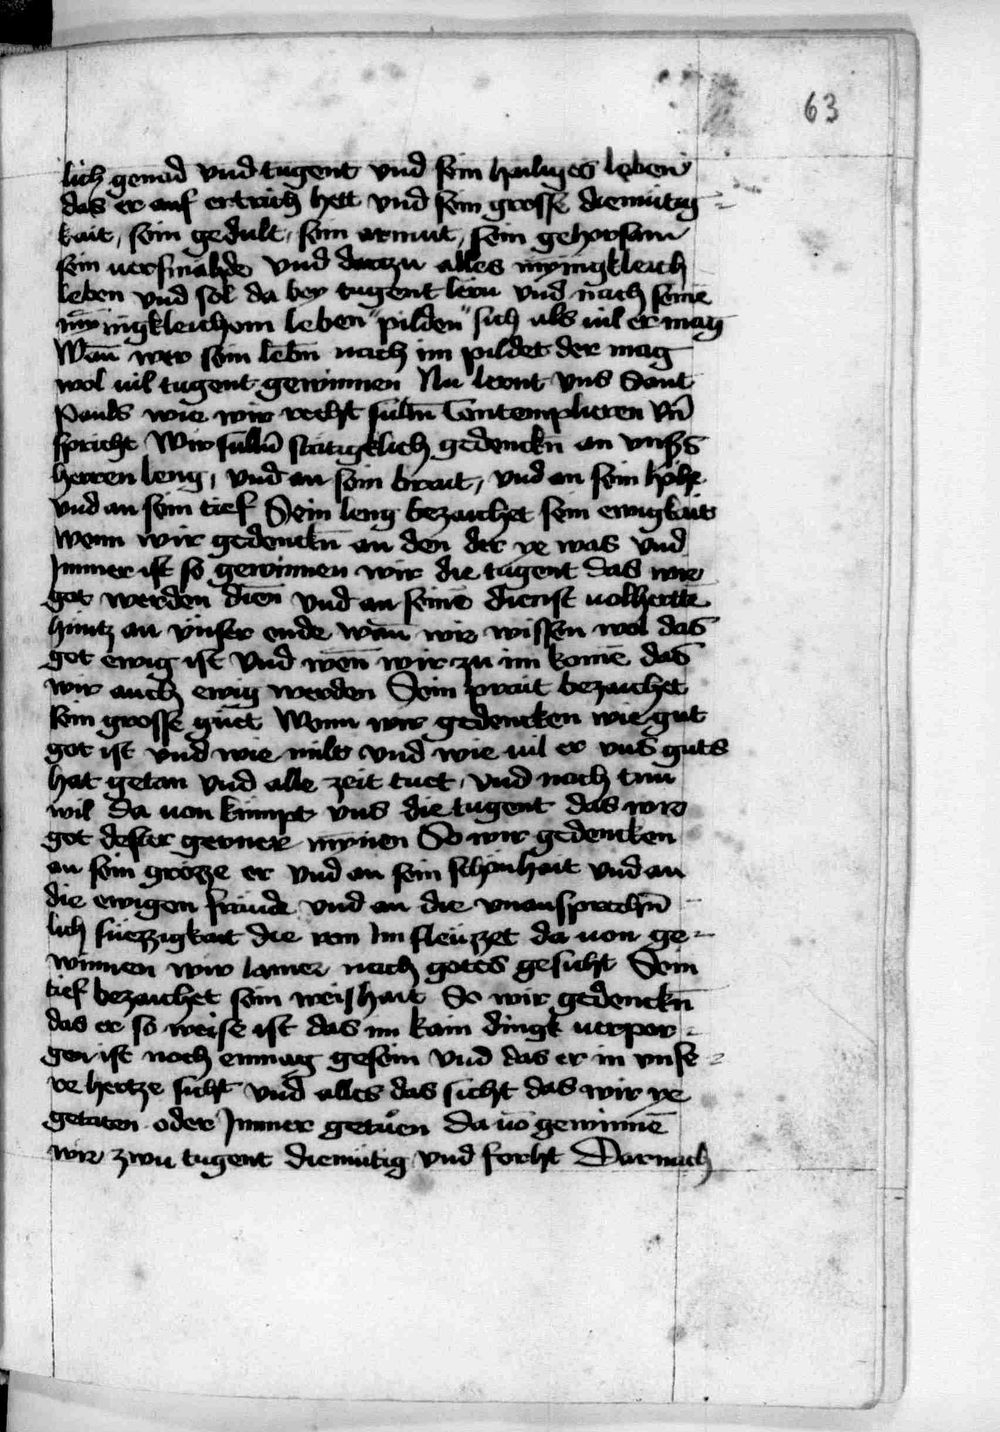 63
lich genad vnd tugent vnd sein heiliges leben
das er auf ertrich hett vnd sein grosse diemütig
kait, sein gedult, sein armut, sein gehorsam
sein uersmahde vnd darzu alles mynigkleich
leben vnd sol da bey tugent lern vnd nach seinē
mynigkleichem leben "pilden" sich als uil er mag
Wān wer sein lebn̄ nach im pildet der mag
wol uil tugent gewinnen Nu lernt vns Sant
Pauls wie wir recht sülln̄ Contemplieren vn̄
spricht Wir sulln̄ stätigklich gedenckn̄ an vnsß
herren leng, vnd an sein brait, vnd an sein höhe
vnd an sein tief Sein leng bezaichet sein ewigkait
wenn wir gedenckn̄ an den der ye was vnd
Jmmer ist so gewinnen wir die tugent das wir
got werden dien̄ vnd an seinē dienst uolhertte
hintz an vnser ende wān wir wissen wol das
got ewig ist vnd wen̄ wir zu im komē das
wir auch ewig werden Sein prait bezaichet
sein grosse güet Wenn wir gedencken wie gut
got ist vnd wie milt vnd wie uil er vns guts
hat getan vnd alle zeit tuet, vnd noch tun
wil da uon kümpt vns die tugent das wir
got dester gerner mynen So wir gedencken
an sein grözze er vnd an sein schönhait vnd an
die ewigen fräude vnd an die vnaussprechn̄
lich süezzigkait die von Im fleüzzet da uon ge-
winnen wir Iamer nach gotes gesicht Sein
tief bezaichet sein weishait So wir gedenckn̄
das er so weise ist das im kain dingk uerpor-
gen ist noch enmag gesein vnd das er in vnse-
re hertze sicht vnd alles das sicht das wir ye
getaten oder Jmmer getuen Da uō gewinnē
wir zwu tugent diemütig vnd forht Darnach